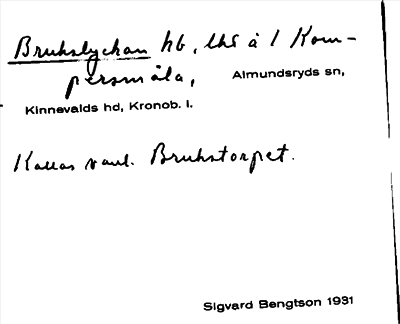 Brukslyckan hb, lhs å 1 Kom-
persmåla, Almundsryds sn,
Kinnevalds hd, Kronob. l.
Kallas vanl. Brukstorpet.
Sigvard Bengtson 1931